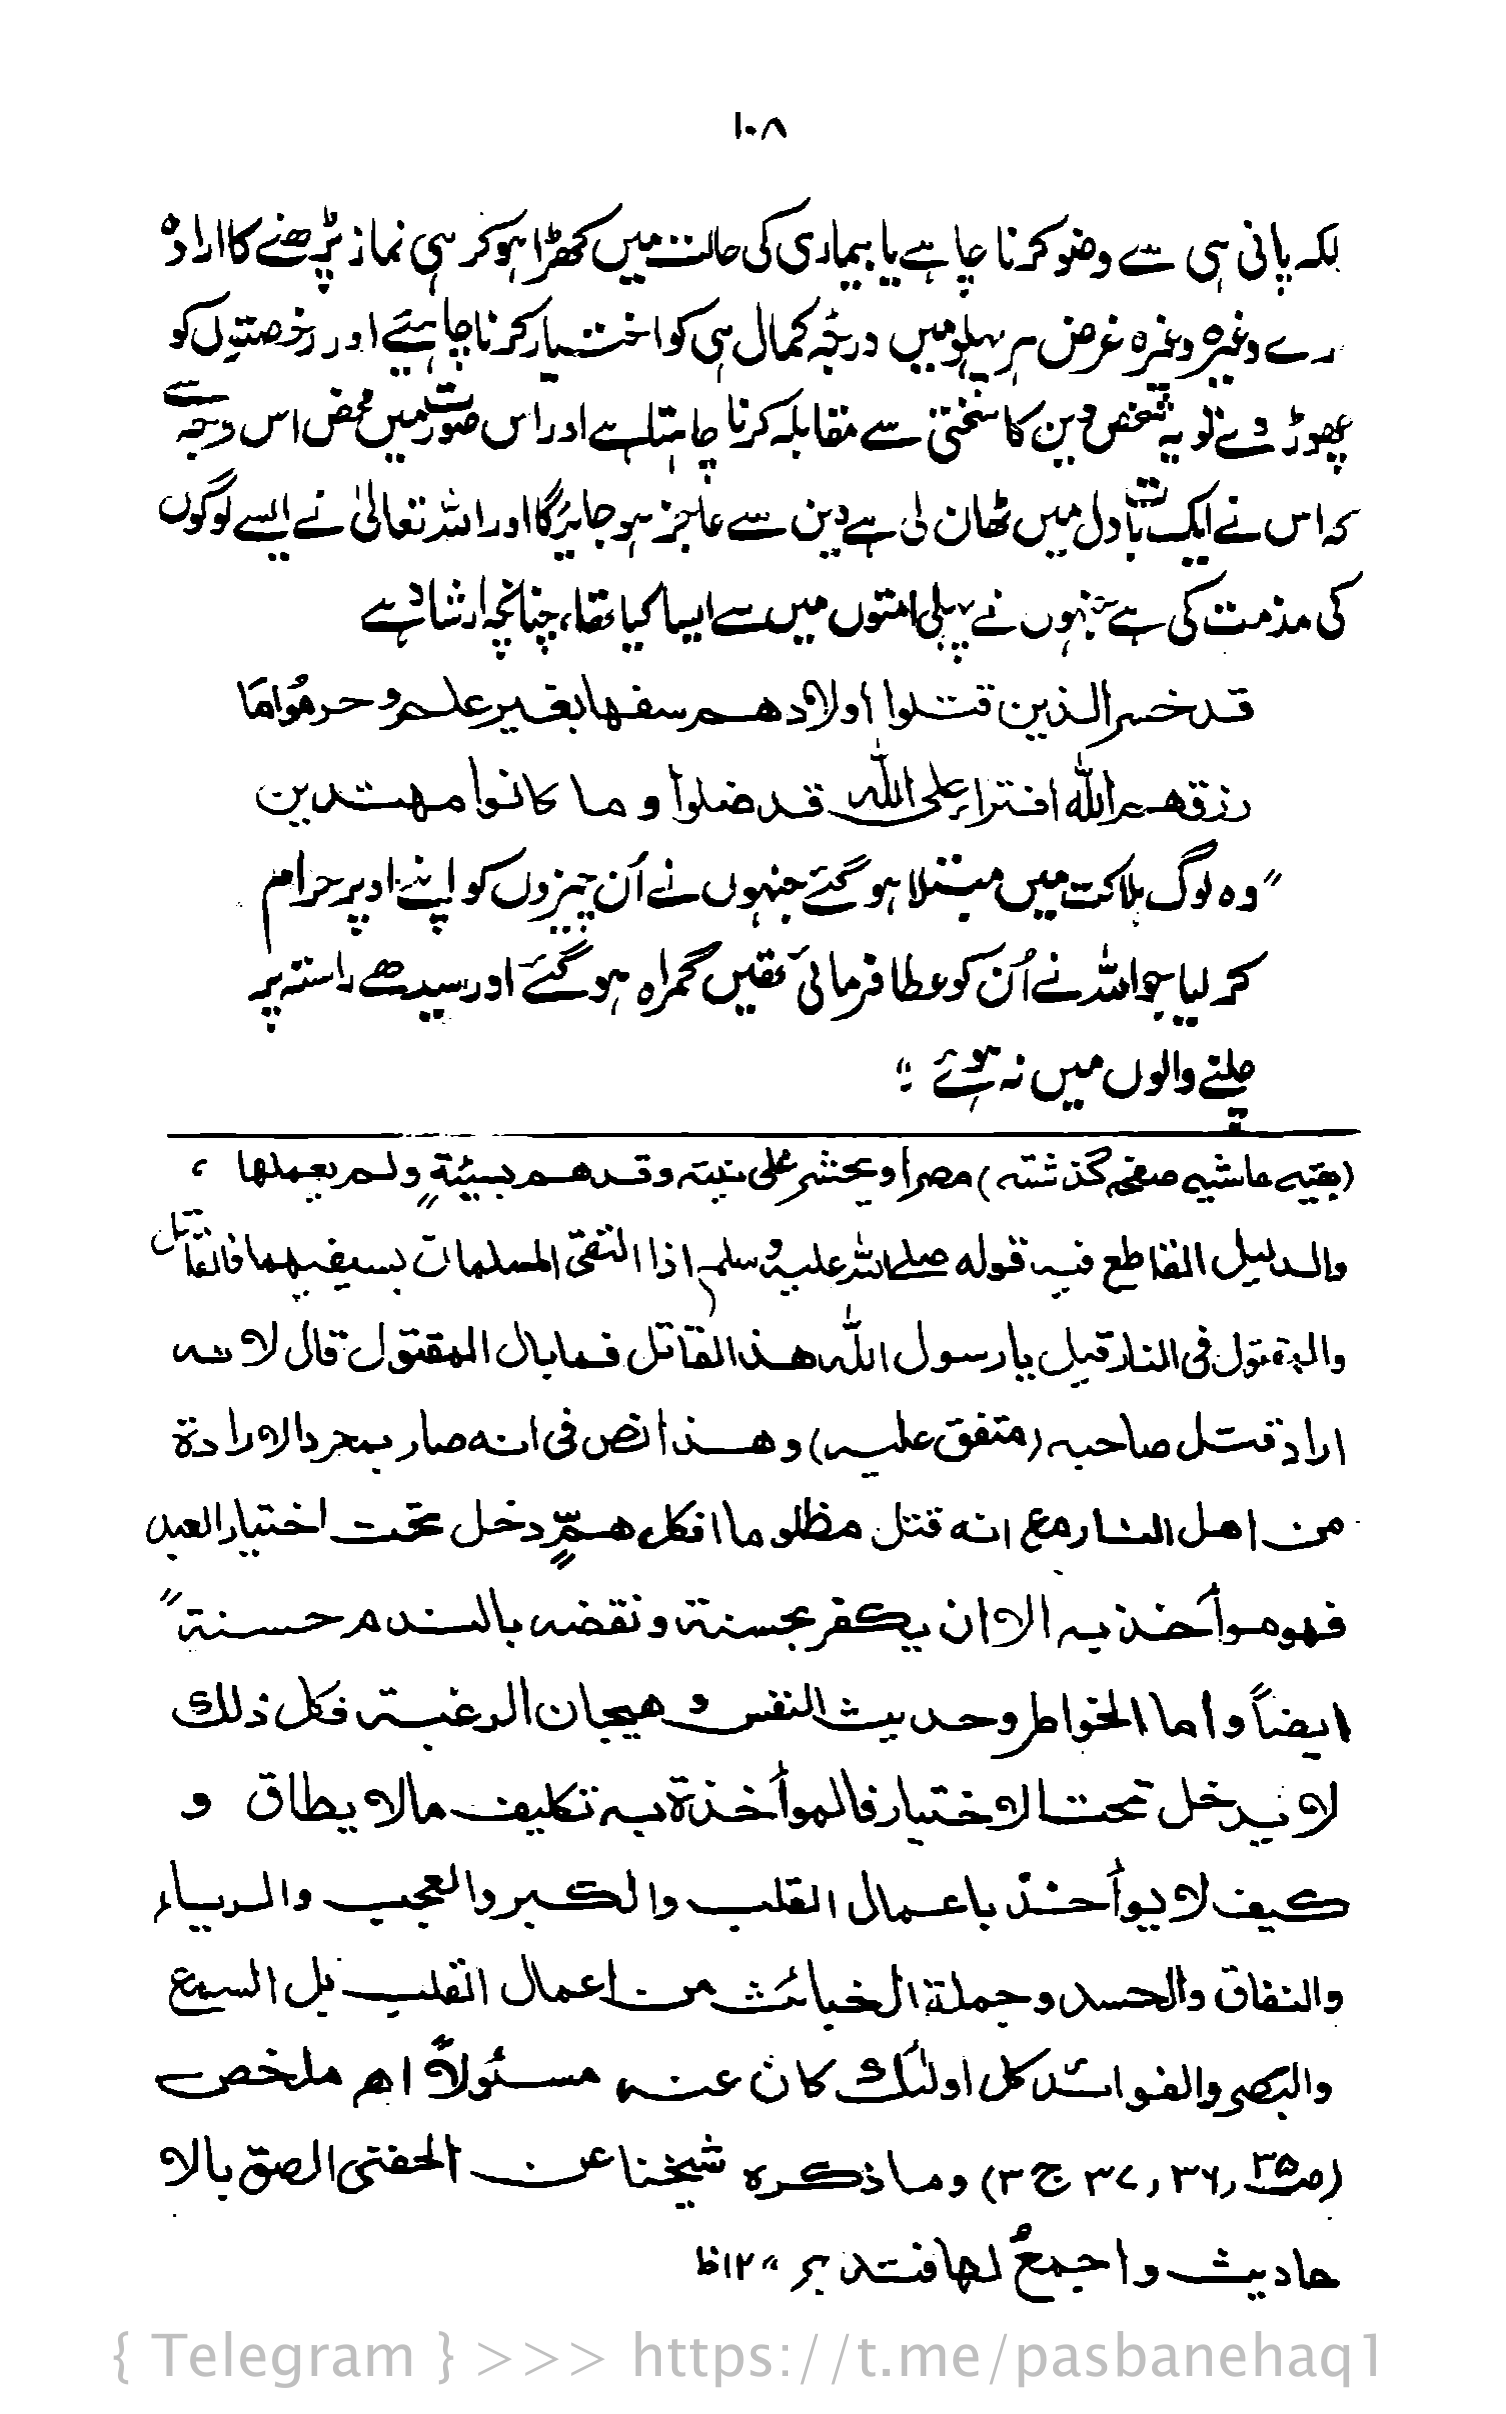 ۱۰۸
بلکہ پانی ہی سے وضو کرنا چاہے یا بیماری کی حالت میں کھڑا ہو کر ہی نماز پڑھنے کا ارادہ
کرے وغیرہ وغیرہ غرض ہر پہلو میں درجۂ کمال ہی کو اختیار کرنا چاہیئے اور رخصتوں کو
چھوڑ دے تو یہ شخص دین کا سختی سے مقابلہ کرنا چاہتا ہے اور اس صورت میں محض اس وجہ سے
کہ اس نے ایک بات دل میں ٹھان لی ہے دین سے عاجز ہو جائیگا اور اللہ تعالیٰ نے ایسے لوگوں
کی مذمت کی ہے جنہوں نے پہلی امتوں میں سے ایسا کیا تھا، چنانچہ ارشاد ہے
قد خسر الذین قتلوا اولادهم سفها بغیر علم وحرموا ما
رزقهم الله افتراء علی الله قد ضلوا وما کانوا مهتدین
"وہ لوگ ہلاکت میں مبتلا ہو گئے جنہوں نے اُن چیزوں کو اپنے اوپر حرام
کر لیا جو اللہ نے اُن کو عطا فرمائی تھیں گمراہ ہو گئے اور سیدھے راستہ پر
چلنے والوں میں نہ ہوئے ؛"
(بقیہ حاشیہ صفحہ گذشتہ) مصرا ویحشر علی نیتہ وقد هم بسیئة ولم یعملها ،
والدلیل القاطع فیہ قولہ صلے اللہ علیہ وسلم اذا التقی المسلمان بسیفیهما فالقاتل
والمقتول فی النار قیل یا رسول الله هذا القاتل فما بال المقتول قال لانه
اراد قتل صاحبہ (متفق علیہ) وهذا نص فی انه صار بمجرد الارادة
من اهل النار مع انه قتل مظلوما فکل همٍّ دخل تحت اختیار العبد
فهو مواٰخذ بہ الا ان یکفر بحسنة ونقضہ بالندم حسنة"
ایضاً واما الخواطر وحدیث النفس وهیجان الرغبة فکل ذلك
لا یدخل تحت الاختیار فالمواٰخذة بہ تکلیف مالا یطاق و
کیف لا یواٰخذ باعمال القلب والکبر والعجب والریاء
والنفاق والحسد وجملة الخبائث من اعمال القلب بل السمع
والبصر والفوائد کل اولئك کان عنہ مسئولاً اھ ملخص
(ص۳۵ ,۳۶ ,۳۷ ج ۳) وما ذکرہ شیخنا عن الحفنی الصق بالا
حادیث واجمع لها فتدبر "۱۲ظ
{ Telegram } >>> https://t.me/pasbanehaq1